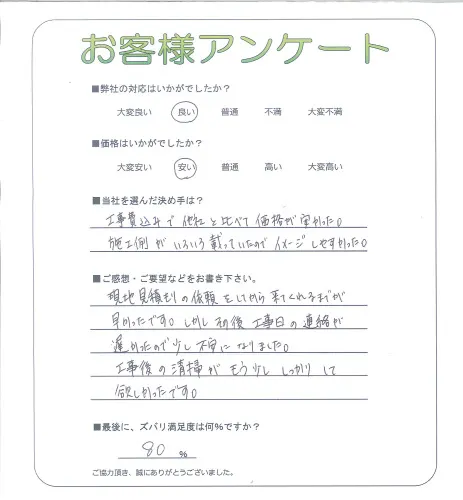 お客様アンケート
■弊社の対応はいかがでしたか？
大変良い 良い 普通 不満 大変不満
■価格はいかがでしたか？
大変安い 安い 普通 高い 大変高い
■当社を選んだ決め手は？
工事費込みで他社と比べて価格が安かった。
施工例がいろいろ載っていたのでイメージしやすかった。
■ご感想・ご要望などをお書き下さい。
現地見積もりの依頼をしてから来てくれるまでが
早かったです。しかしその後工事日の連絡が
遅かったので少し不安になりました。
工事後の清掃がもう少ししっかりして
欲しかったです。
■最後に、ズバリ満足度は何％ですか？
80 %
ご協力頂き、誠にありがとうございました。